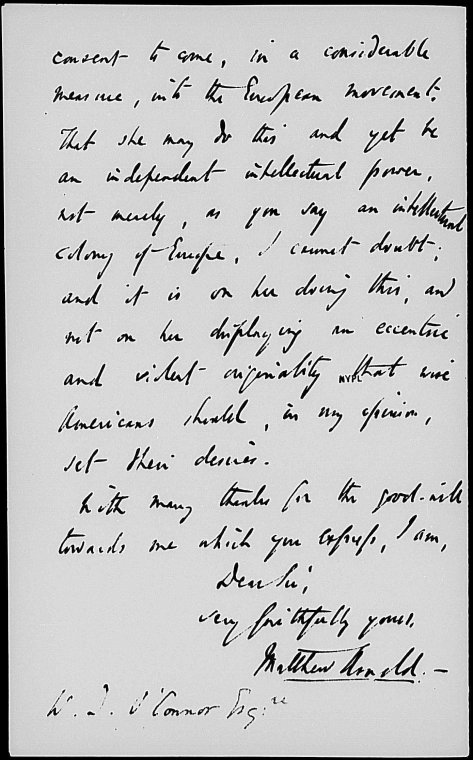 consent to come, in a considerable
measure, into the European movement.
That she may do this and yet be
an independent intellectual power,
not merely, as you say an intellectual
colony of Europe, I cannot doubt;
and it is on her doing this, and
not on her displaying an eccentric
and violent originality NYPL that wise
Americans should, in my opinion,
set their desires.
With many thanks for the good-will
towards me which you express, I am,
Dear Sir,
very faithfully yours,
Matthew Arnold.—
W. D. O'Connor Esq:re